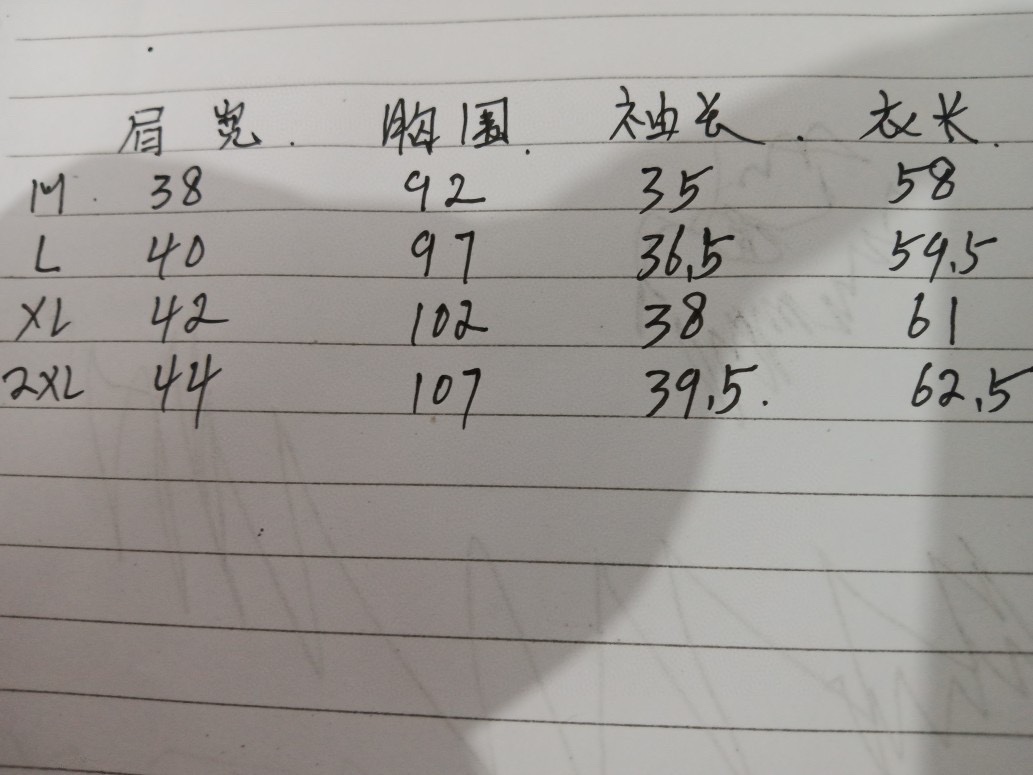 眉宽. 胸围. 袖长. 衣长.
M. 38 92 35 58
L 40 97 36.5 59.5
XL 42 102 38 61
2XL 44 107 39.5. 62.5